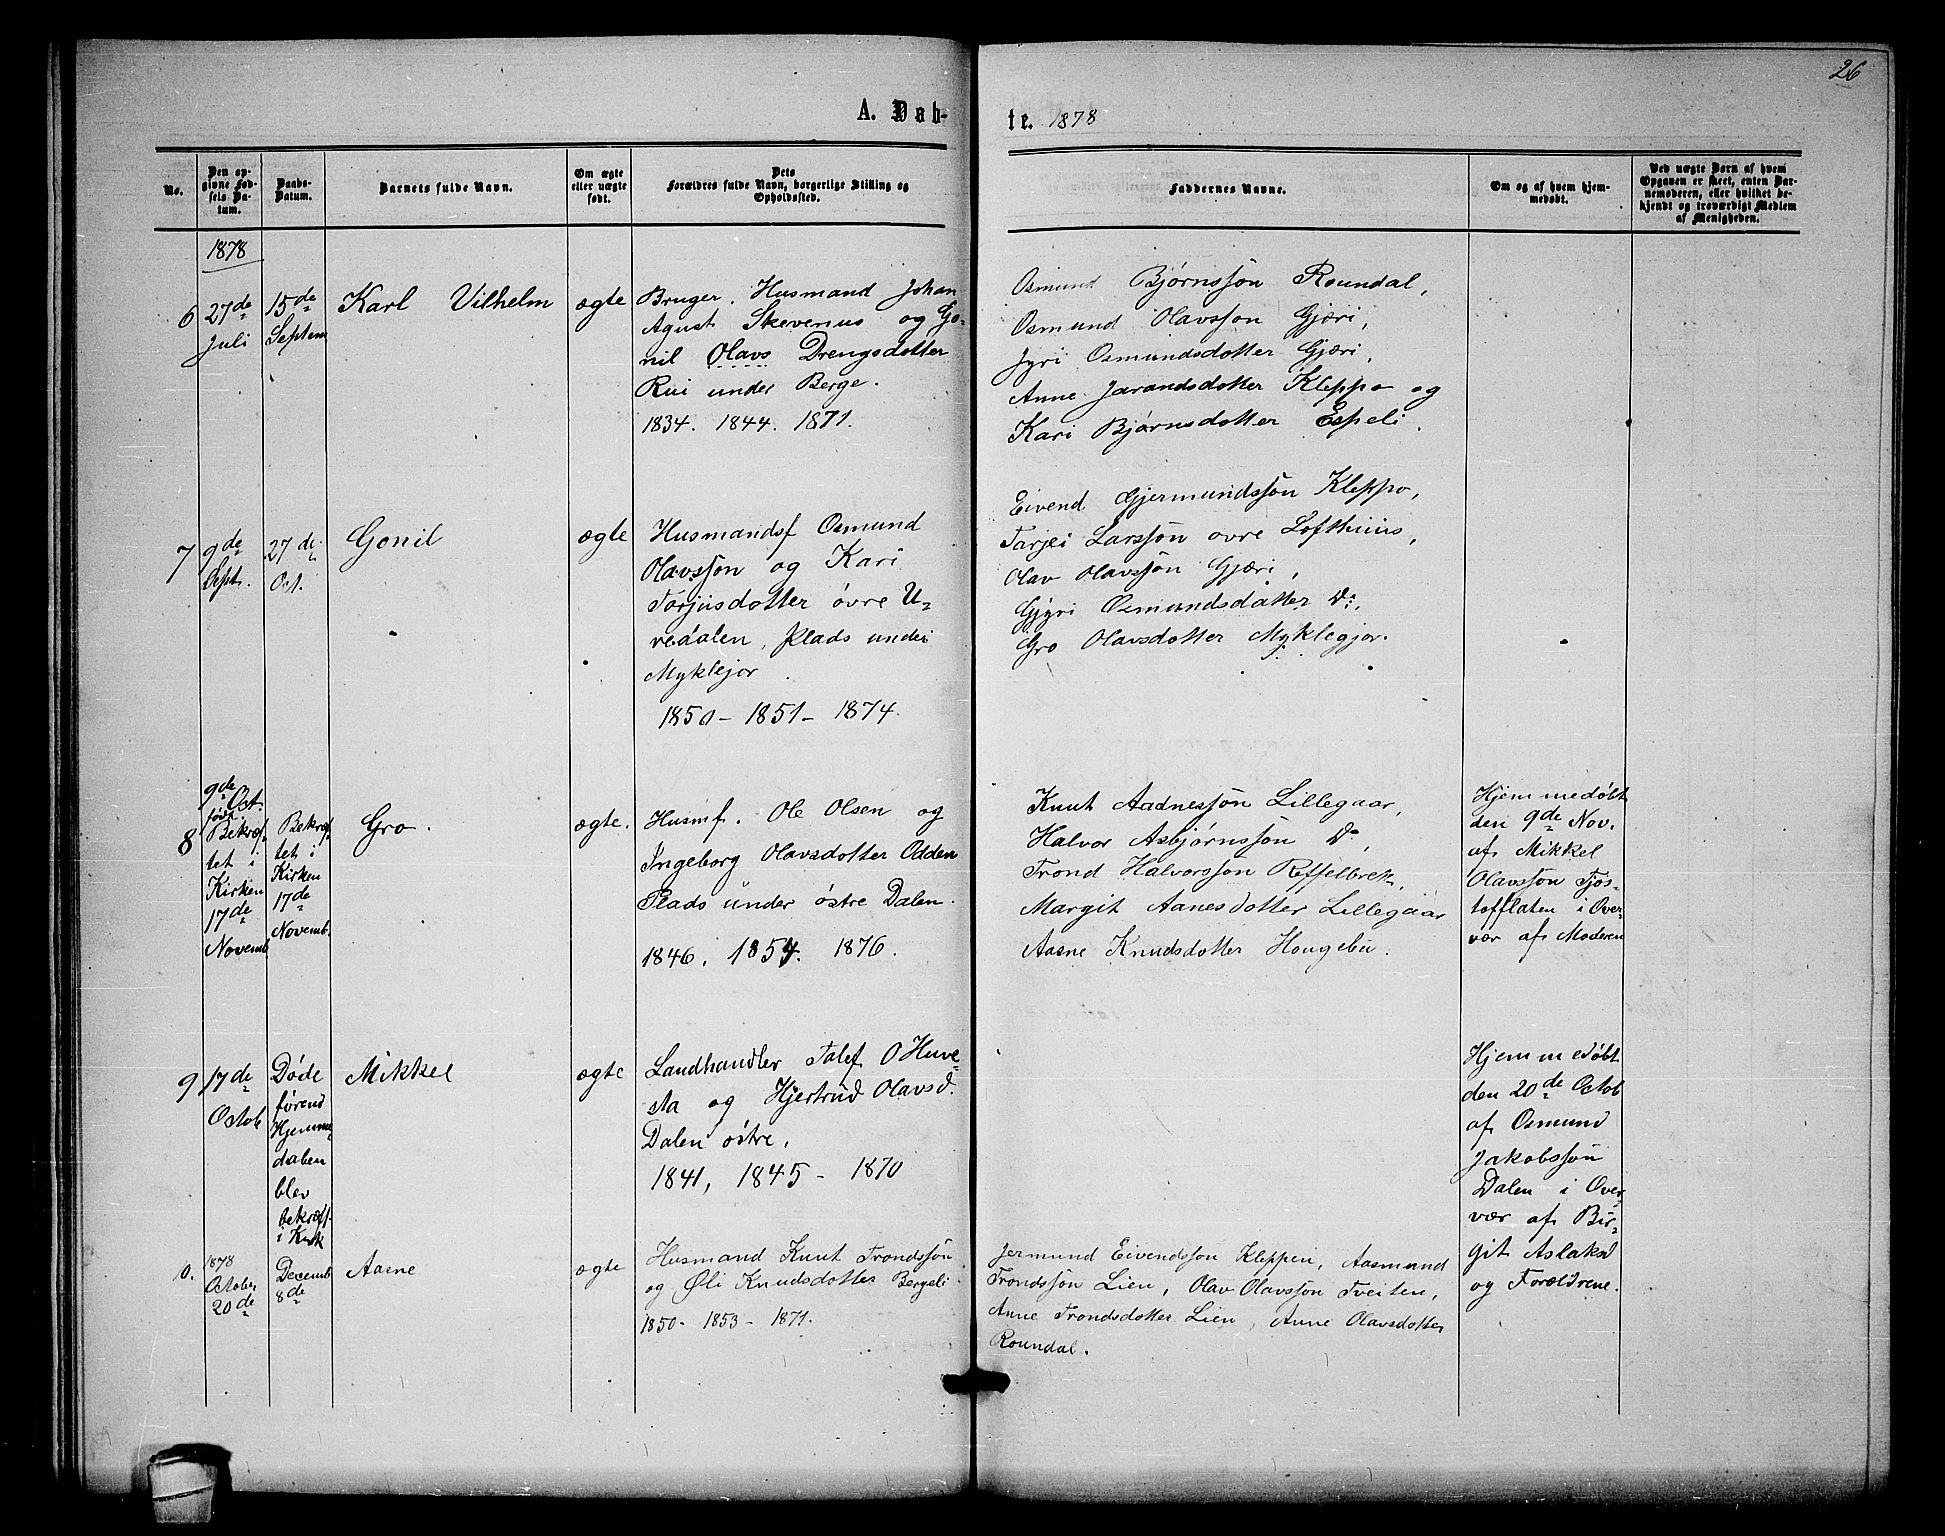 26
A. Døb-
te. 1878
No.
Den op-
givne Fød-
sels Da-
tum.
Daabs-
Datum.
Barnets fulde Navn.
Om ægte
eller uægte
født.
Dets
Forældres fulde Navn, borgerlige Stilling og
Opholdssted.
Faddernes Navne.
Om og af hvem hjem-
medøbt.
Ved uægte Børn af hvem
Opgaven er skeet, enten Bar-
nemoderen, eller hvilket be-
kjendt og troværdigt Medlem
af Menigheden.
1878
6
27de
Juli
15de
Septem
Karl Vilhelm
ægte
Bruger. Husmand Johan
Agust Skevenius og Go-
nil Olavs Drengsdotter
Rui under Berge.
1834. 1844. 1871.
Osmund Bjørnssøn Roundal,
Osmund Olavssøn Gjæri,
Jyri Osmundsdotter Gjæri,
Anne Jarandsdotter Kleppo og
Kari Bjørnsdotter Espeli.
7
9de
Sept.
27de
Oct.
Gonil
ægte
Husmandsf Osmund
Olavssøn og Kari
Torjusdotter øvre U-
vedalen, Plads under
Myklejor
1850 - 1851 - 1874.
Eivend Gjermundssøn Kleppo,
Tarjei Larssøn øvre Lofthuus,
Olav Olavssøn Gjæri,
Gjyri Osmundsdatter Do,
Gro Olavsdotter Myklegjor.
8
9de Oct.
født
Bekræf-
tet i
Kirken
17de
Novemb.
Bekræf-
tet i
Kirken
17de
Novemb.
Gro.
ægte.
Husmf. Ole Olsen og
Ingeborg Olavsdotter Odden
Plads under østre Dalen.
1846. 1854. 1876.
Knut Aadnessøn Lillegaar,
Halvor Asbjørnssøn Do,
Trond Halvorssøn
Margit Aanesdotter Lillegaar
Aasne Knudsdotter Hougebu.
Hjemmedøbt
den 9de Nov.
af Mikkel
Olavssøn Tjos-
tofflaten i Over-
vær af Moderen
9
17de
Octob
Døde
førend
Hjemme-
daaben
blev
bekræft.
i Kirk
Mikkel
ægte
Landhandler Talef O Huve-
sta og Hjertrud Olavsd.
Dalen østre.
1841, 1845 - 1870
Hjemmedøbt
den 20de Octob
af Osmund
Jakobssøn
Dalen i Over-
vær af Bir-
git Aslaksd
og Forældrene.
0.
1878
October
20de
Decemb
8de
Aasne
ægte
Husmand Knut Trondssøn
og Øli Knudsdotter Bergeli.
1850 - 1853 - 1871.
Jermund Eivendssøn Kleppen, Aasmund
Trondssøn Lien, Olav Olavssøn Tveiten,
Anne Trondsdotter Lien, Anne Olavsdotter
Roundal.